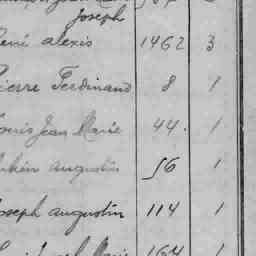 Joseph
René alexis 1462 3
Pierre Ferdinand 8 1
Louis Jean Marie 44. 1
augustin 56 1
Joseph augustin 114 1